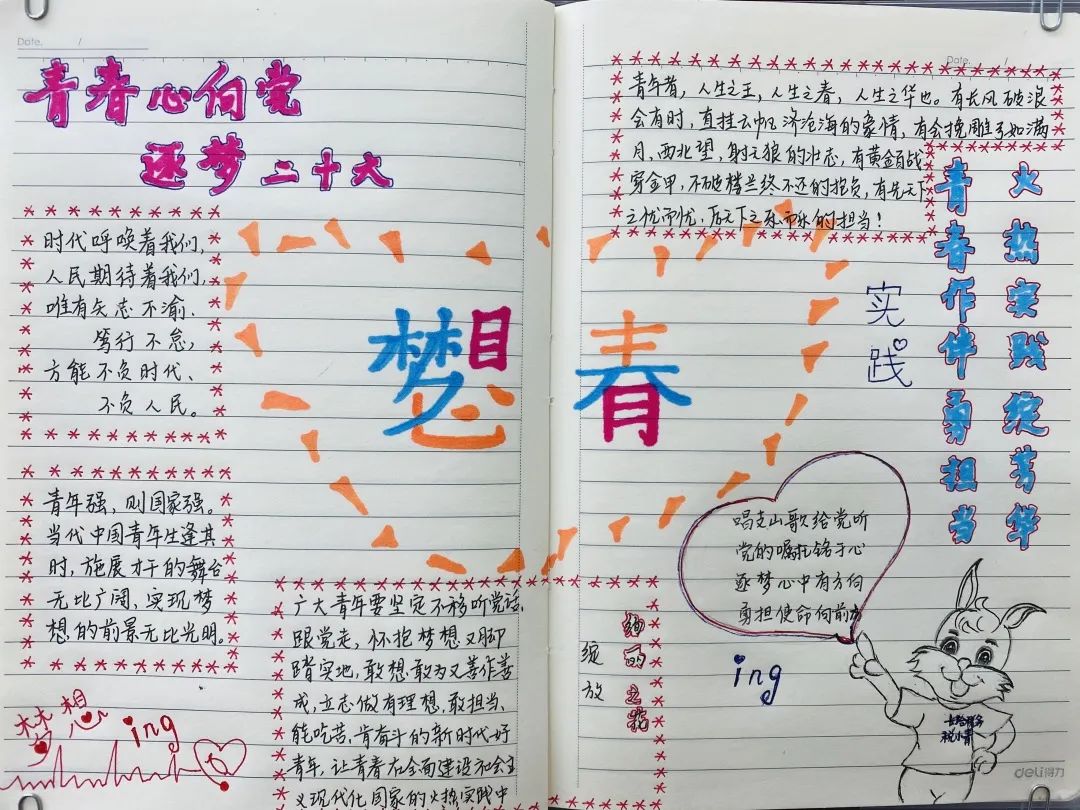 Date. /
青春心向党
逐梦二十大
时代呼唤着我们，
人民期待着我们，
唯有矢志不渝、
笃行不怠，
方能不负时代、
不负人民。
青年强，则国家强。
当代中国青年生逢其
时，施展才干的舞台
无比广阔，实现梦
想的前景无比光明。
梦想 ing
广大青年要坚定不移听党话、
跟党走，怀抱梦想又脚
踏实地，敢想敢为又善作善
成，立志做有理想、敢担当、
能吃苦、肯奋斗的新时代好
青年，让青春在全面建设社会主
义现代化国家的火热实践中
绽放
绚丽之花
梦想
青春
Date. /
青年者，人生之王，人生之春，人生之华也。有长风破浪
会有时，直挂云帆济沧海的豪情，有会挽雕弓如满
月，西北望，射天狼的壮志，有黄金百战
穿金甲，不破楼兰终不还的抱负，有先天下
之忧而忧，后天下之乐而乐的担当！
火热实践绽芳华
青春作伴勇担当
实践
唱支山歌给党听
党的嘱托铭于心
逐梦心中有方向
勇担使命向前
ing
deli得力